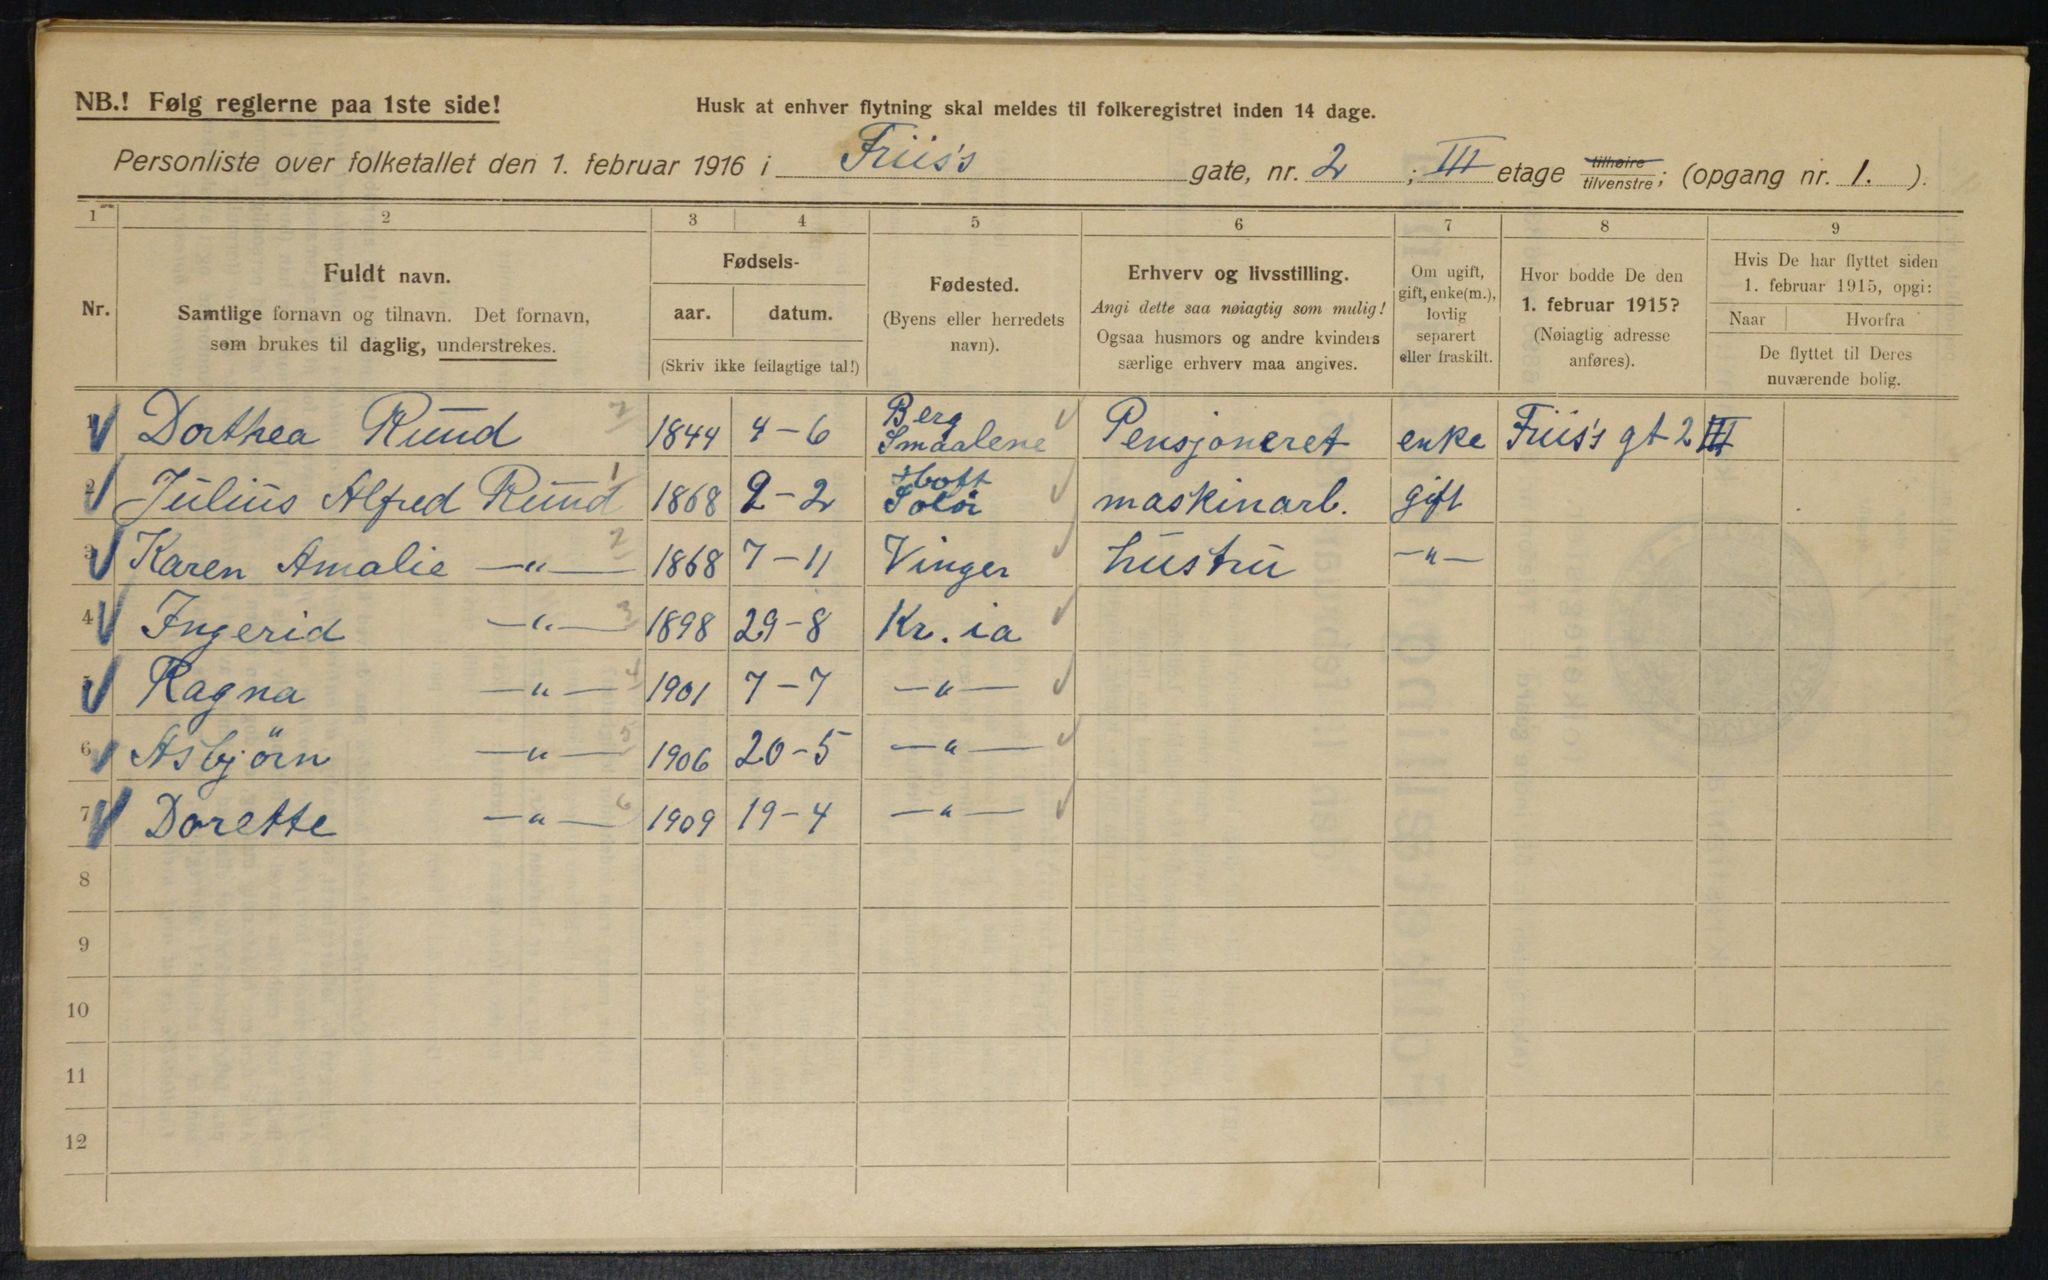 NB.! Følg reglerne paa 1ste side!
Husk at enhver flytning skal meldes til folkeregistret inden 14 dage.
Personliste over folketallet den 1. februar 1916 i Friis's gate, nr. 2 ; III etage tilhøire tilvenstre; (opgang nr. 1. ).
1 2 3 4 5 6 7 8 9
Nr.
Fuldt navn.
Samtlige fornavn og tilnavn. Det fornavn,
som brukes til daglig, understrekes.
Fødsels-
aar. datum.
(Skriv ikke feilagtige tal!)
Fødested.
(Byens eller herredets
navn).
Erhverv og livsstilling.
Angi dette saa nøiagtig som mulig!
Ogsaa husmors og andre kvinders
særlige erhverv maa angives.
Om ugift,
gift, enke(m.),
lovlig
separert
eller fraskilt.
Hvor bodde De den
1. februar 1915?
(Nøiagtig adresse
anføres).
Hvis De har flyttet siden
1. februar 1915, opgi:
Naar Hvorfra
De flyttet til Deres
nuværende bolig.
1 Dorthea Ruud 1844 4-6 Berg Smaalene Pensjoneret enke Friis's gt 2 III
2 Julius Alfred Ruud 1 1868 2-2 Solör maskinarb. gift
3 Karen Amalie —"— 2 1868 7-11 Vinger hustru —"—
4 Ingerid —"— 3 1898 29-8 Kr.ia
5 Ragna —"— 4 1901 7-7 —"—
6 Asbjörn —"— 5 1906 20-5 —"—
7 Dorette —"— 6 1909 19-4 —"—
8
9
10
11
12